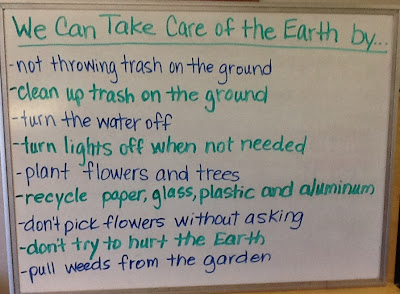 We Can Take Care of the Earth by...
-not throwing trash on the ground
-clean up trash on the ground
-turn the water off
-turn lights off when not needed
-plant flowers and trees
-recycle paper, glass, plastic and aluminum
-don't pick flowers without asking
-don't try to hurt the Earth
-pull weeds from the garden